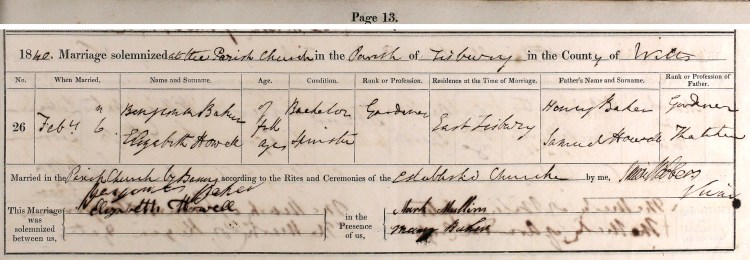 Page 13.
1840. Marriage solemnized at the Parish Church in the Parish of Tisbury in the County of Wilts
No. When Married. Name and Surname. Age. Condition. Rank or Profession. Residence at the Time of Marriage. Father's Name and Surname. Rank or Profession of Father.
26 Feby 6 Benjamin Baker of Bachelor Gardener East Tisbury Henry Baker Gardener
Elizabeth Howell full ages Spinster Samuel Howell Thatcher
Married in the Parish Church by Banns according to the Rites and Ceremonies of the Established Church by me,
Vicar
This Marriage was solemnized between us, Benjamin Baker
Elizabeth Howell
in the Presence of us, Mark Mullins
Mary Baker